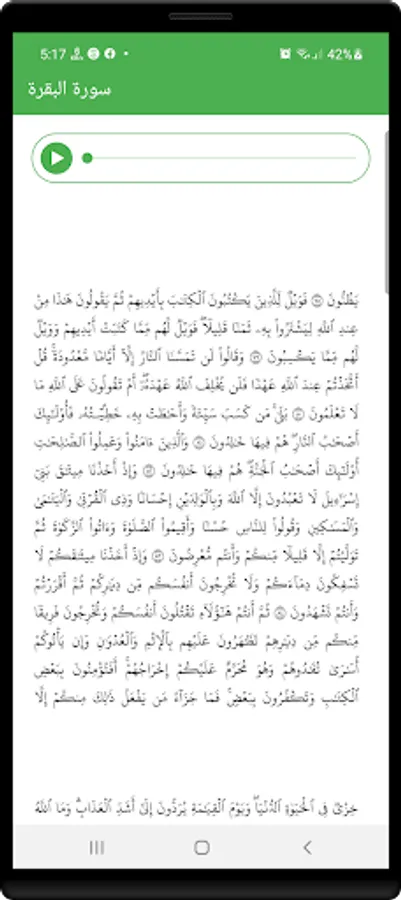 5:17
42%
سورة البقرة
يَظُنُّونَ ۝ فَوَيْلٌ لِّلَّذِينَ يَكْتُبُونَ ٱلْكِتَٰبَ بِأَيْدِيهِمْ ثُمَّ يَقُولُونَ هَٰذَا مِنْ
عِندِ ٱللَّهِ لِيَشْتَرُوا۟ بِهِۦ ثَمَنًا قَلِيلًا ۖ فَوَيْلٌ لَّهُم مِّمَّا كَتَبَتْ أَيْدِيهِمْ وَوَيْلٌ
لَّهُم مِّمَّا يَكْسِبُونَ ۝ وَقَالُوا۟ لَن تَمَسَّنَا ٱلنَّارُ إِلَّآ أَيَّامًا مَّعْدُودَةً ۚ قُلْ
أَتَّخَذْتُمْ عِندَ ٱللَّهِ عَهْدًا فَلَن يُخْلِفَ ٱللَّهُ عَهْدَهُۥٓ ۖ أَمْ تَقُولُونَ عَلَى ٱللَّهِ مَا
لَا تَعْلَمُونَ ۝ بَلَىٰ مَن كَسَبَ سَيِّئَةً وَأَحَٰطَتْ بِهِۦ خَطِيٓـَٔتُهُۥ فَأُو۟لَٰٓئِكَ
أَصْحَٰبُ ٱلنَّارِ ۖ هُمْ فِيهَا خَٰلِدُونَ ۝ وَٱلَّذِينَ ءَامَنُوا۟ وَعَمِلُوا۟ ٱلصَّٰلِحَٰتِ
أُو۟لَٰٓئِكَ أَصْحَٰبُ ٱلْجَنَّةِ ۖ هُمْ فِيهَا خَٰلِدُونَ ۝ وَإِذْ أَخَذْنَا مِيثَٰقَ بَنِىٓ
إِسْرَٰٓءِيلَ لَا تَعْبُدُونَ إِلَّا ٱللَّهَ وَبِٱلْوَٰلِدَيْنِ إِحْسَانًا وَذِى ٱلْقُرْبَىٰ وَٱلْيَتَٰمَىٰ
وَٱلْمَسَٰكِينِ وَقُولُوا۟ لِلنَّاسِ حُسْنًا وَأَقِيمُوا۟ ٱلصَّلَوٰةَ وَءَاتُوا۟ ٱلزَّكَوٰةَ ثُمَّ
تَوَلَّيْتُمْ إِلَّا قَلِيلًا مِّنكُمْ وَأَنتُم مُّعْرِضُونَ ۝ وَإِذْ أَخَذْنَا مِيثَٰقَكُمْ لَا
تَسْفِكُونَ دِمَآءَكُمْ وَلَا تُخْرِجُونَ أَنفُسَكُم مِّن دِيَٰرِكُمْ ثُمَّ أَقْرَرْتُمْ
وَأَنتُمْ تَشْهَدُونَ ۝ ثُمَّ أَنتُمْ هَٰٓؤُلَآءِ تَقْتُلُونَ أَنفُسَكُمْ وَتُخْرِجُونَ فَرِيقًا
مِّنكُم مِّن دِيَٰرِهِمْ تَظَٰهَرُونَ عَلَيْهِم بِٱلْإِثْمِ وَٱلْعُدْوَٰنِ وَإِن يَأْتُوكُمْ
أُسَٰرَىٰ تُفَٰدُوهُمْ وَهُوَ مُحَرَّمٌ عَلَيْكُمْ إِخْرَاجُهُمْ ۚ أَفَتُؤْمِنُونَ بِبَعْضِ
ٱلْكِتَٰبِ وَتَكْفُرُونَ بِبَعْضٍ ۚ فَمَا جَزَآءُ مَن يَفْعَلُ ذَٰلِكَ مِنكُمْ إِلَّا
خِزْىٌ فِى ٱلْحَيَوٰةِ ٱلدُّنْيَا ۖ وَيَوْمَ ٱلْقِيَٰمَةِ يُرَدُّونَ إِلَىٰٓ أَشَدِّ ٱلْعَذَابِ ۗ وَمَا ٱللَّهُ